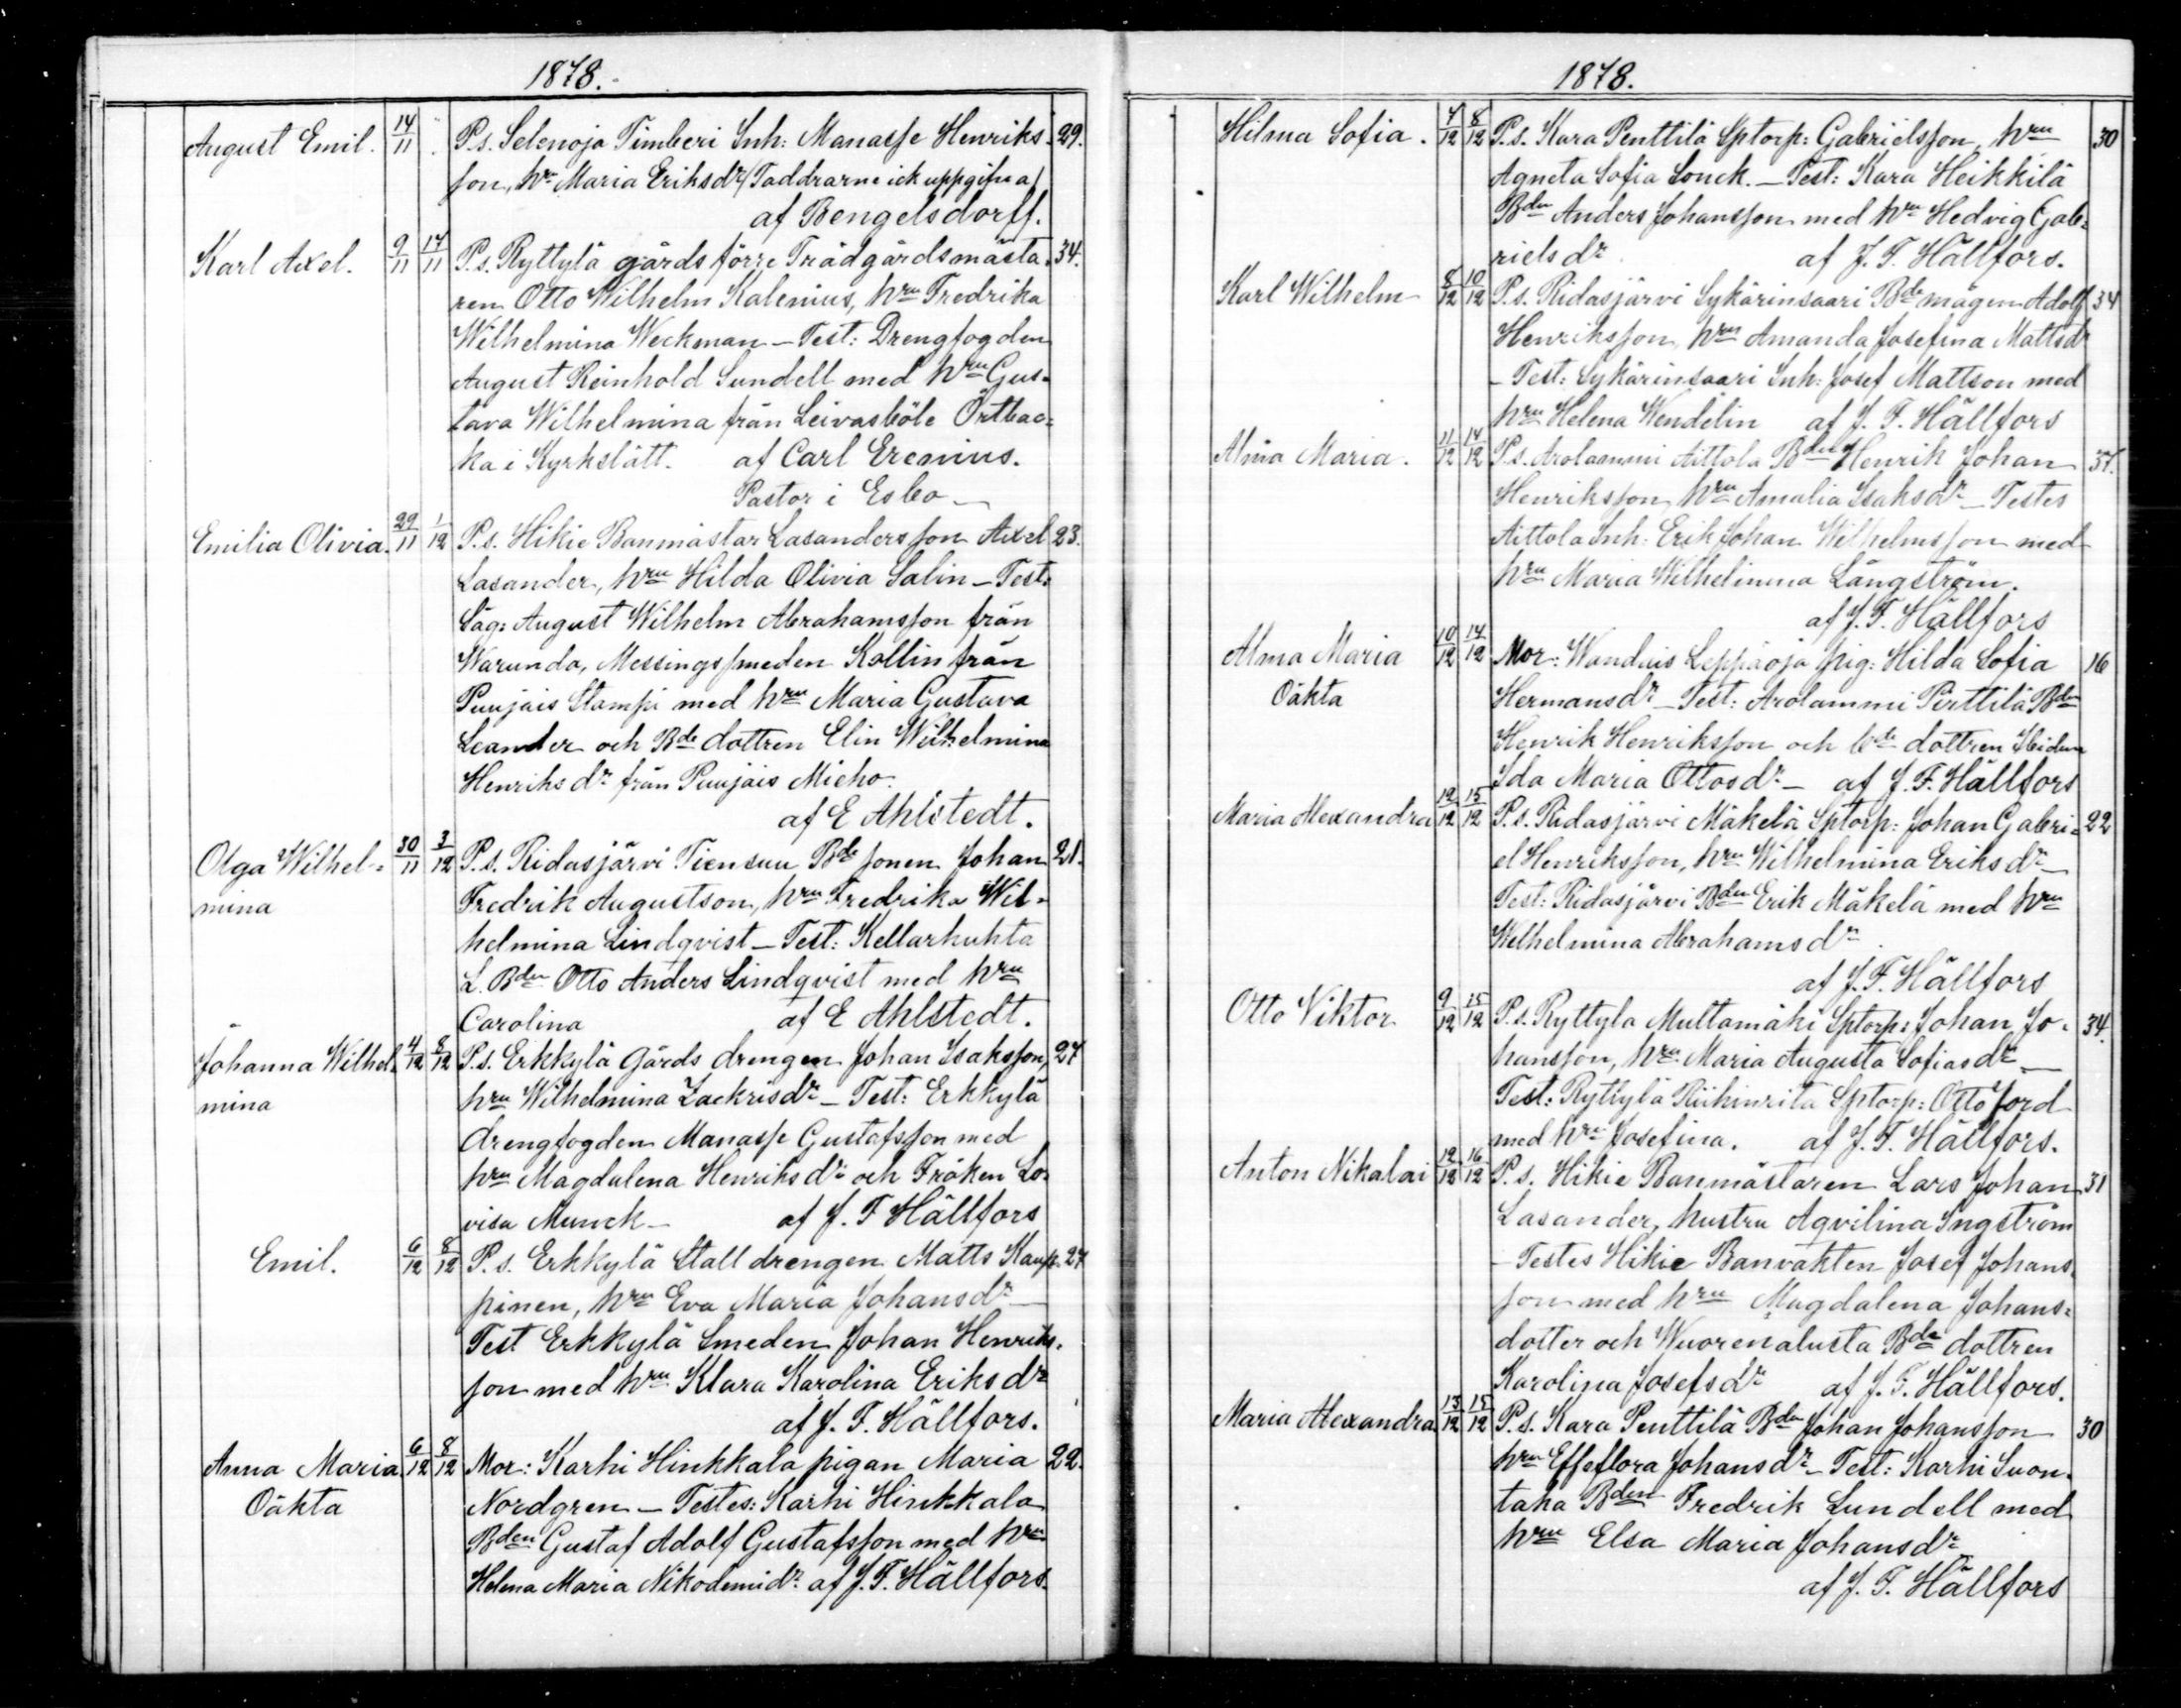 1878.
August Emil. 14/11 P.s. Selenoja Timberi Inh: Manasse Henriks- 29.
son, hru Maria Eriksdr (Faddrarne ick uppgifna)
af Bengelsdorff.
Karl Axel. 9/11 17/11 P.s. Ryttylä gårds förre Trädgårdsmästa- 34.
ren Otto Wilhelm Kalenius, hru Fredrika
Wilhelmina Weckman – Test: Drengfogden
August Reinhold Sundell med hru Gus-
tava Wilhelmina från Leivasböle Örtbac-
ka i Kyrkslätt. af Carl Erenius.
Pastor i Esbo –
Emilia Olivia. 29/11 1/12 P.s. Hikie Banmästar Lasandersson Axel 23.
Lasander, hru Hilda Olivia Salin – Test:
Läg: August Wilhelm Abrahamsson från
Warunda, Messingssmeden Kollin från
Puujais Stampi med hru Maria Gustava
Leander och Bde dottren Elin Wilhelmina
Henriksdr från Puujais Mieho.
af E Ahlstedt.
Olga Wilhel- 30/11 3/12 P.s. Ridasjärvi Tiensuu Bde sonen Johan 21.
mina
Fredrik Augustson, hru Fredrika Wil-
helmina Lindqvist – Test: Kellarhuhta
L. Bden Otto Anders Lindqvist med hru
Carolina af E Ahlstedt.
Johanna Wilhel- 4/12 8/12 P.s. Erkkylä Gårds drengen Johan Isaksson, 27
mina
hru Wilhelmina Zackrisdr – Test: Erkkylä
drengfogden Manasse Gustafsson med
hru Magdalena Henriksdr och Fröken Lo-
visa Munck – af J. F Hällfors
Emil. 6/12 8/12 P.s. Erkkylä Stalldrengen Matts Kaup- 27
pinen, hru Eva Maria Johansdr –
Test Erkkylä Smeden Johan Henriks-
son med hru Klara Karolina Eriksdr
af J. F. Hällfors.
Anna Maria 6/12 8/12 Mor: Karhi Hinkkala pigan Maria 22.
Oäkta
Nordgren – Testes: Karhi Hinkkala
Bden Gustaf Adolf Gustafsson med hru
Helena Maria Nikodemidr. af J. F. Hällfors.
1878.
Hilma Sofia. 7/12 8/12 P.s. Kara Penttilä Sptorp: Gabrielsson, hru 30
Agneta Sofia Lonck. – Test: Kara Heikkilä
Bden Anders Johansson med hru Hedvig Gab-
rielsdr af J. F. Hällfors.
Karl Wilhelm 8/12 10/12 P.s. Ridasjärvi Sykärinsaari Bde mågen Adolf 34
Henriksson, hru Amanda Josefina Mattsdr
– Test: Sykärinsaari Inh: Josef Mattson med
hru Helena Wendelin af J. F. Hällfors
Alma Maria. 11/12 14/12 P.s. Arolammi Aittola Bden Henrik Johan 37.
Henriksson, hru Amalia Isaksdr – Testes
Aittola Inh: Erik Johan Wilhelmsson med
hru Maria Wilhelmina Långström.
af J. F. Hällfors
Alma Maria 10/12 14/12 Mor: Wanduis Leppäoja pig: Hilda Sofia 16
Oäkta
Hermansdr – Test: Arolammi Pirttilä Bden
Henrik Henriksson och bde dottren
Ida Maria Ottosdr – af J. F. Hällfors
Maria Alexandra 12/12 15/12 P.s. Ridasjärvi Mäkelä Sptorp: Johan Gabri- 22
el Henriksson, hru Wilhelmina Eriksdr –
Test: Ridasjärvi Bden Erik Mäkelä med hru
Wilhelmina Abrahamsdr
af J. F. Hällfors
Otto Viktor 9/12 15/12 P.s. Ryttyla Multamäki Sptorp: Johan Jo- 34.
hansson, hru Maria Augusta Sofiasdr –
Test: Ryttylä Riihinrita Sptorp: Otto Jord
med hru Josefina. af J. F. Hällfors.
Anton Nikalai 12/12 16/12 P.s. Hikie Banmästaren Lars Johan 31
Lasander, hustru Aqvilina Ingström
– Testes Hikie Banvakten Josef Johans-
son med hru Magdalena Johans-
dotter och Wuorenalusta Bde dottren
Karolina Josefsdr af J. F. Hällfors.
Maria Alexandra 13/12 15/12 P.s. Kara Penttilä Bden Johan Johansson 30
hru Effeflora Johansdr – Test: Karhi Suon-
taka Bden Fredrik Lundell med
hru Elsa Maria Johansdr
af J. F. Hällfors